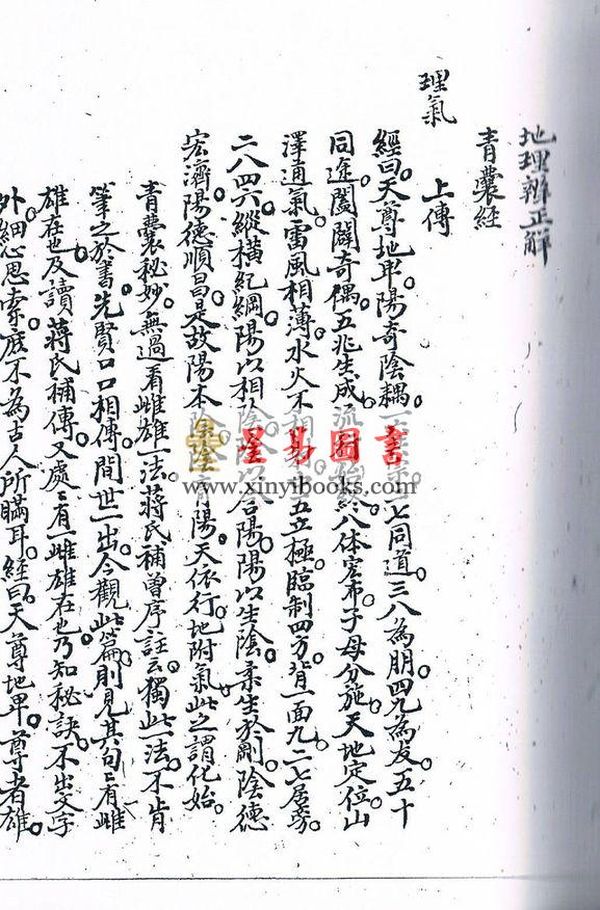 地理辨正解
青囊經
理氣
上傳
經曰。天尊地卑。陽奇陰耦。一七同道。三八為朋。四九為友。五十
同途。闔闢奇偶。五兆生成。流行始終。八体宏布。子母分施。天地定位。山
澤通氣。雷風相薄。水火不相五立極。臨制四方。背一面九。二七居旁。
二八四六。縱橫紀綱。陽以相陰。陰以含陽。陽以生陰。柔生於剛。陰德
宏濟。陽德順昌。是故陽本陰。陰育陽。天依行。地附氣。此之謂化始。
青囊秘妙。無過看雌雄一法。蔣氏補曾序註云。獨此一法。不肯
筆之於書。先賢口口相傳。間世一出。今觀此篇。則見其句〻有雌
雄在也。及讀蔣氏補傳。又處〻有一雌雄在也。乃知秘訣。不出文字
外。細心思索。庶不為古人所瞞耳。經曰。天尊地卑。尊者雄。
星易圖書
www.xinyibooks.com